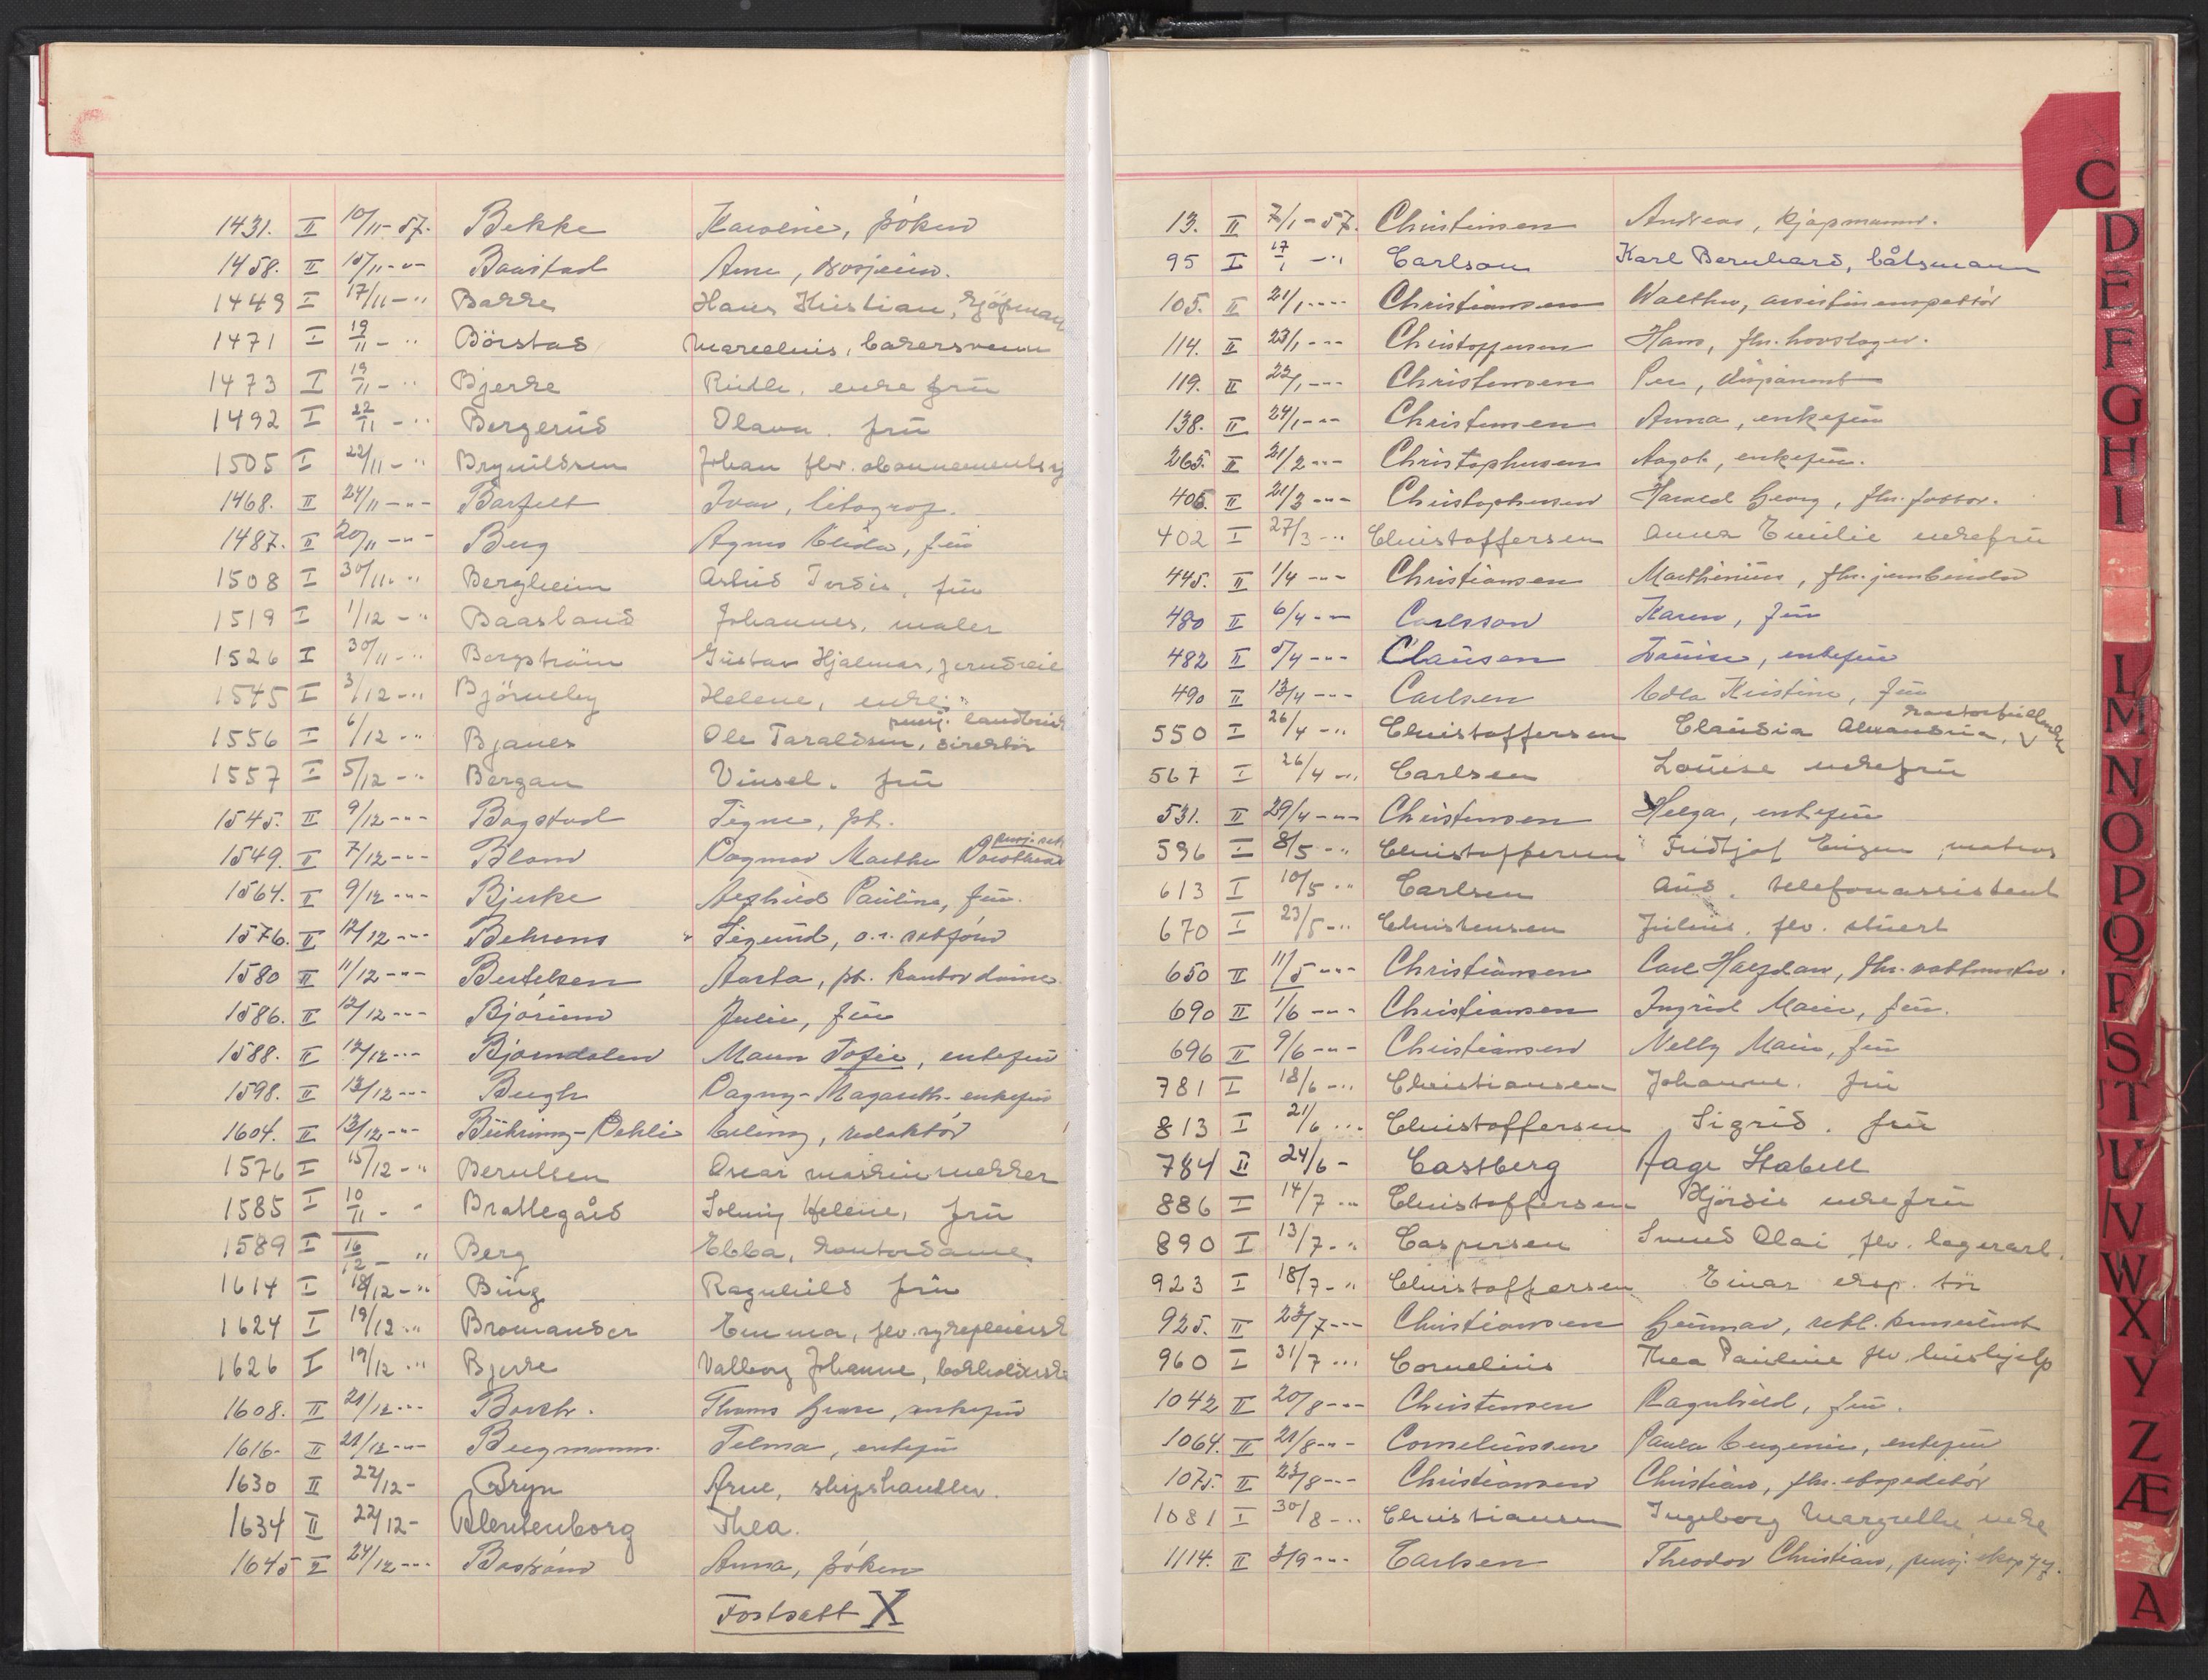 1431. II 10/11-57. Bekke Karoline, frøken
1458. II 15/11-"- Baastad Arne,
1449 I 17/11-" Bakke Hans Kristian, kjøpman
1471 I 19/11-" Börstad Marcelius, bakersvenn
1473 I 19/11-" Bjerke Ruth, enkefrü
1492 I 22/11-" Bergerüd Olava. frü
1505 I 22/11-" Brynildsen Johan fhv. abonnements
1468. II 24/11-"- Barfelt Ivar, litograf.
1487. II 20/11-"- Berg Agnes Elida, frü
1508 I 30/11-" Bergheim Astrid Tordis, frü
1519 I 1/12-" Baasland Johannes, maler
1526 I 30/11-" Bergström Güstav Hjalmar,
1545 I 3/12-" Björneby Helene, enke"
1556 I 6/12-" Bjanes Ole Taraldsen, direktör pensj. landbrüks
1557 I 5/12-" Bergan Vinsel. frü
1545. II 9/12-"- Bogstad Signe, frk.
1549. II 7/12-"- Blom Dagmar Marthe Dorothea
1564. II 9/12-"- Bjerke Alfhild Pauline, frü.
1576. II 12/12-"- Behrens Sigurd, o.r.sakfører
1580 II 11/12-"- Bertelsen Aasta, frk. kontordame
1586. II 12/12-"- Bjørum Julie, frü
1588. II 12/12-"- Bjørndalen Maren Sofie, enkefrü
1598. II 13/12-"- Bergh Dagny-Margareth- enkefrü
1604. II 13/12-"- Bühring-Dehli redaktør
1576 I 15/12-" Berntsen Oscar maskinvakker
1585 I 10/11-" Brattegård Solveig Helene, frü
1589 I 16/12-" Berg Ebba, kontordame
1614 I 18/12-" Bürg Ragnhild frü
1624 I 19/12-" Bromander Emma, fhv. sykepleiersk
1626 I 19/12-" Bjerke Valborg Johanne, bokholderske
1608. II 21/12-"- Borch. enkefrü
1616- II 21/12-"- Bergmann. Selma, enkefrü
1630 II 22/12- Bryn Arne, skipshandler.
1634 II 22/12- Blentenborg Thea.
1645 II 24/12-"- Boström Anna, frøken
Fortsatt X
C
13. II 7/1-57. Christensen Andreas, kjøpmann.
95 I 17/1-" Carlson Karl Bernhard, båtsmann
105. II 21/1-"- Christiansen Walther, assistinenspektör
114. II 23/1-"- Christoffersen Hans, fhv. hovslager.
119. II 22/1-"- Christensen Per, disponent
138. II 24/1-"- Christensen Anna, enkefrü
265. II 21/2-"- Christophersen Aagot, enkefrü.
406. II 21/3-"- Christophersen Harald Georg, fhv.
402 I 27/3-" Christoffersen Anna Emilie enkefrü
445. II 1/4-"- Christiansen Marthinius, fhv. jernbinder
480 II 6/4-"- Carlsson Karen, frü
482 II 5/4-"- Clausen Louise, enkefrü
490 II 13/4-"- Carlsen Edla Kristine, frü
550 I 26/4-" Christoffersen Claüdia Alexandria, kontorfüllm.
567 I 26/4-" Carlsen Loüise enkefrü
531. II 29/4-"- Christensen Helga, enkefrü
596 I 8/5-" Christoffersen Fridtjof Eügen matros
613 I 10/5-" Carlsen Aüd. telefonassistent
670 I 23/5-" Christensen Jülius. fhv. stüert
650 II 11/5-"- Christiansen Carl Halfdan, fhv.
690 II 1/6-"- Christiansen Ingrid Marie, frü.
696 II 9/6-"- Christiansen Nelly Marie, frü
781 I 18/6-" Christiansen Johanne. frü
813 I 21/6-" Christoffersen Sigrid. frü
784 II 24/6- Castberg Aage Stabell
886 I 14/7-" Christoffersen Hjördis enkefrü
890 I 13/7-" Caspersen Svend Olai fhv. lagerarb.
923 I 18/7-" Christoffersen Einar eksp. tör
925. II 23/7-"- Christiansen Günnar, rekl. konsulent
960 I 31/7-" Cornelius Thea Pauline fhv. hüshjelp
1042 II 20/8-"- Christensen Ragnhild, frü.
1064. II 21/8-"- Corneliussen Paula Eugenie, enkefrü
1075. II 23/8-"- Christiansen Christian, fhv. ekspeditør
1081 I 30/8-" Christiansen Ingeborg Margrethe enke
1114. II 3/9-"- Carlsen Theodor Christian, pensj.
D
E
F
G
H
I
L
M
N
O
P
Q
R
S
T
U
V
W
X
Y
Z
Æ
A